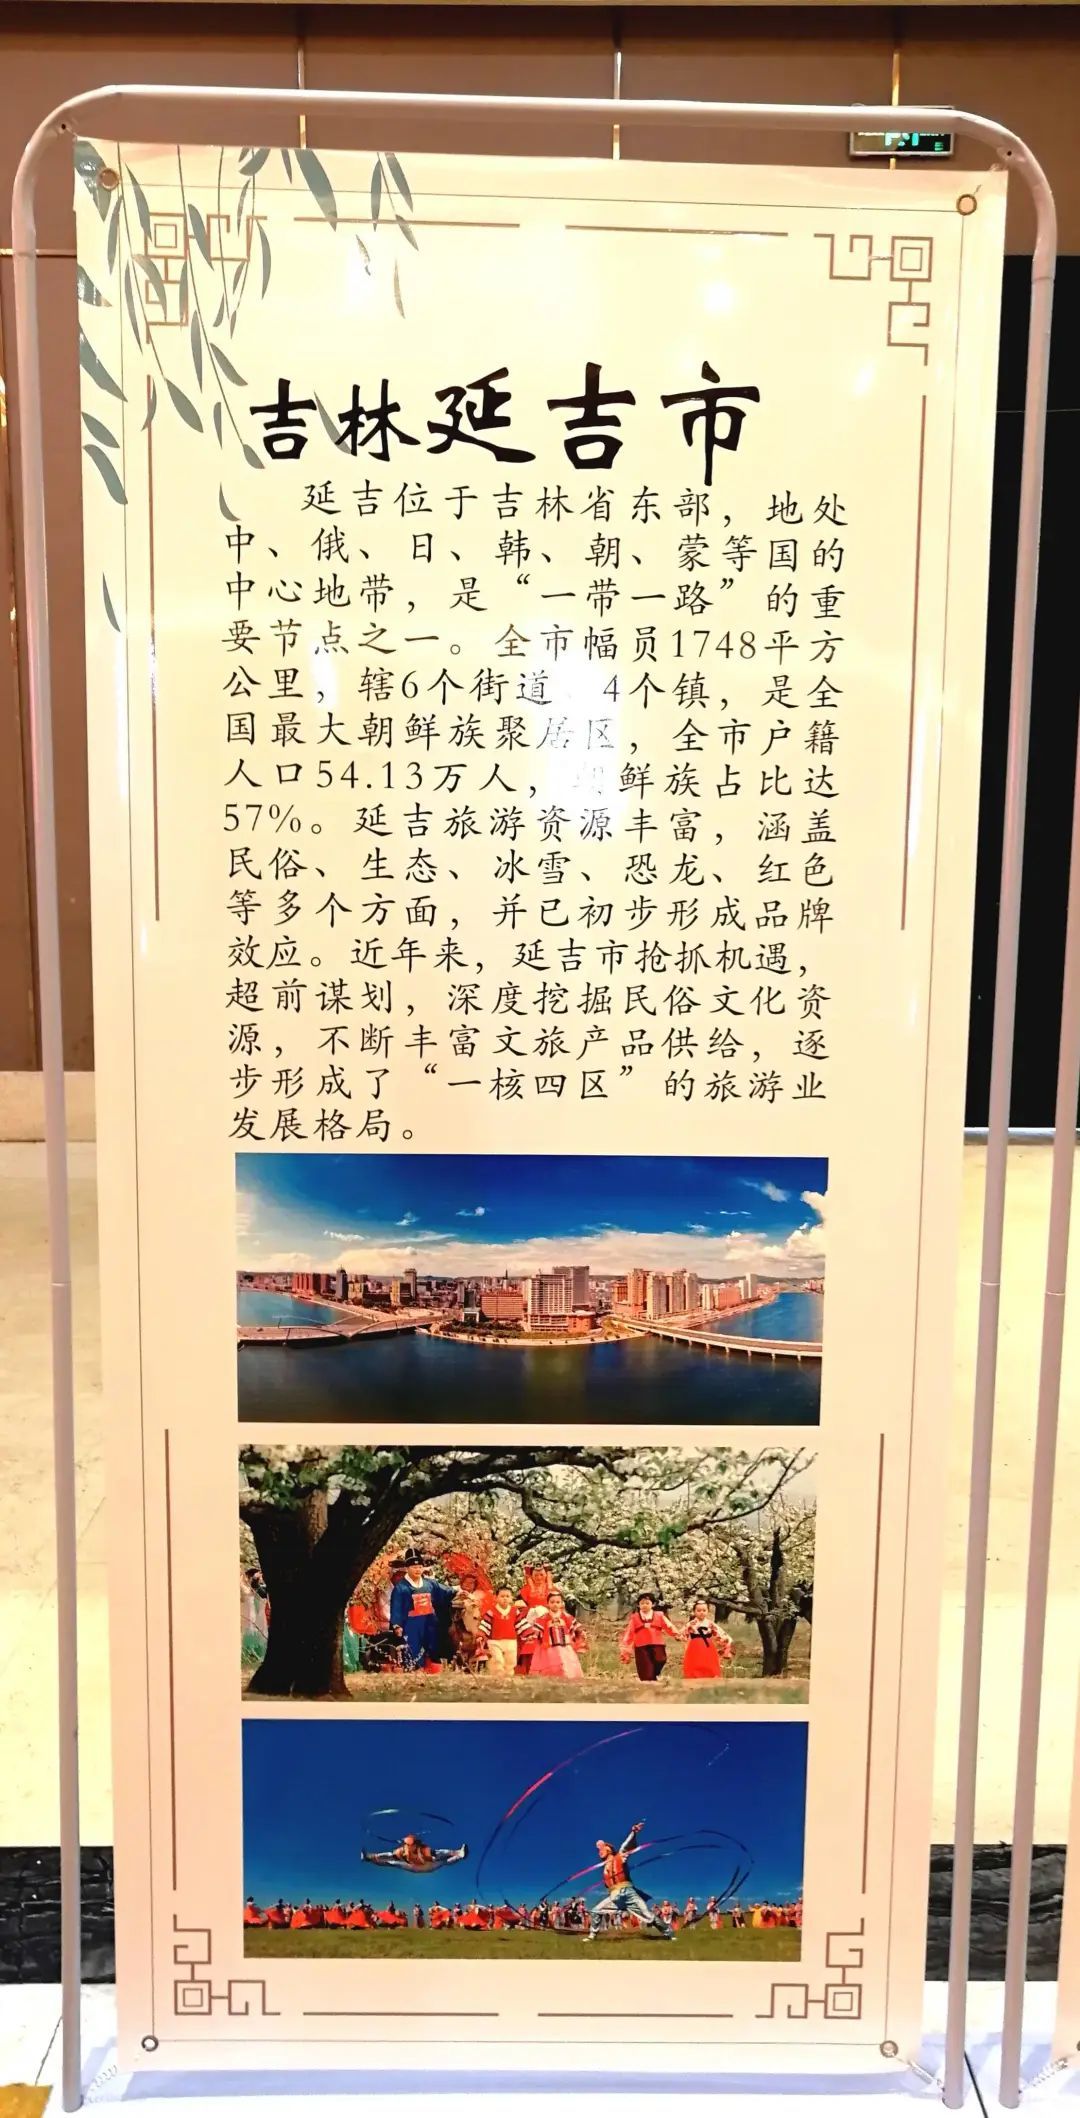 吉林延吉市
延吉位于吉林省东部，地处
中、俄、日、韩、朝、蒙等国的
中心地带，是“一带一路”的重
要节点之一。全市幅员1748平方
公里，辖6个街道、4个镇，是全
国最大朝鲜族聚居区，全市户籍
人口54.13万人，朝鲜族占比达
57%。延吉旅游资源丰富，涵盖
民俗、生态、冰雪、恐龙、红色
等多个方面，并已初步形成品牌
效应。近年来，延吉市抢抓机遇，
超前谋划，深度挖掘民俗文化资
源，不断丰富文旅产品供给，逐
步形成了“一核四区”的旅游业
发展格局。